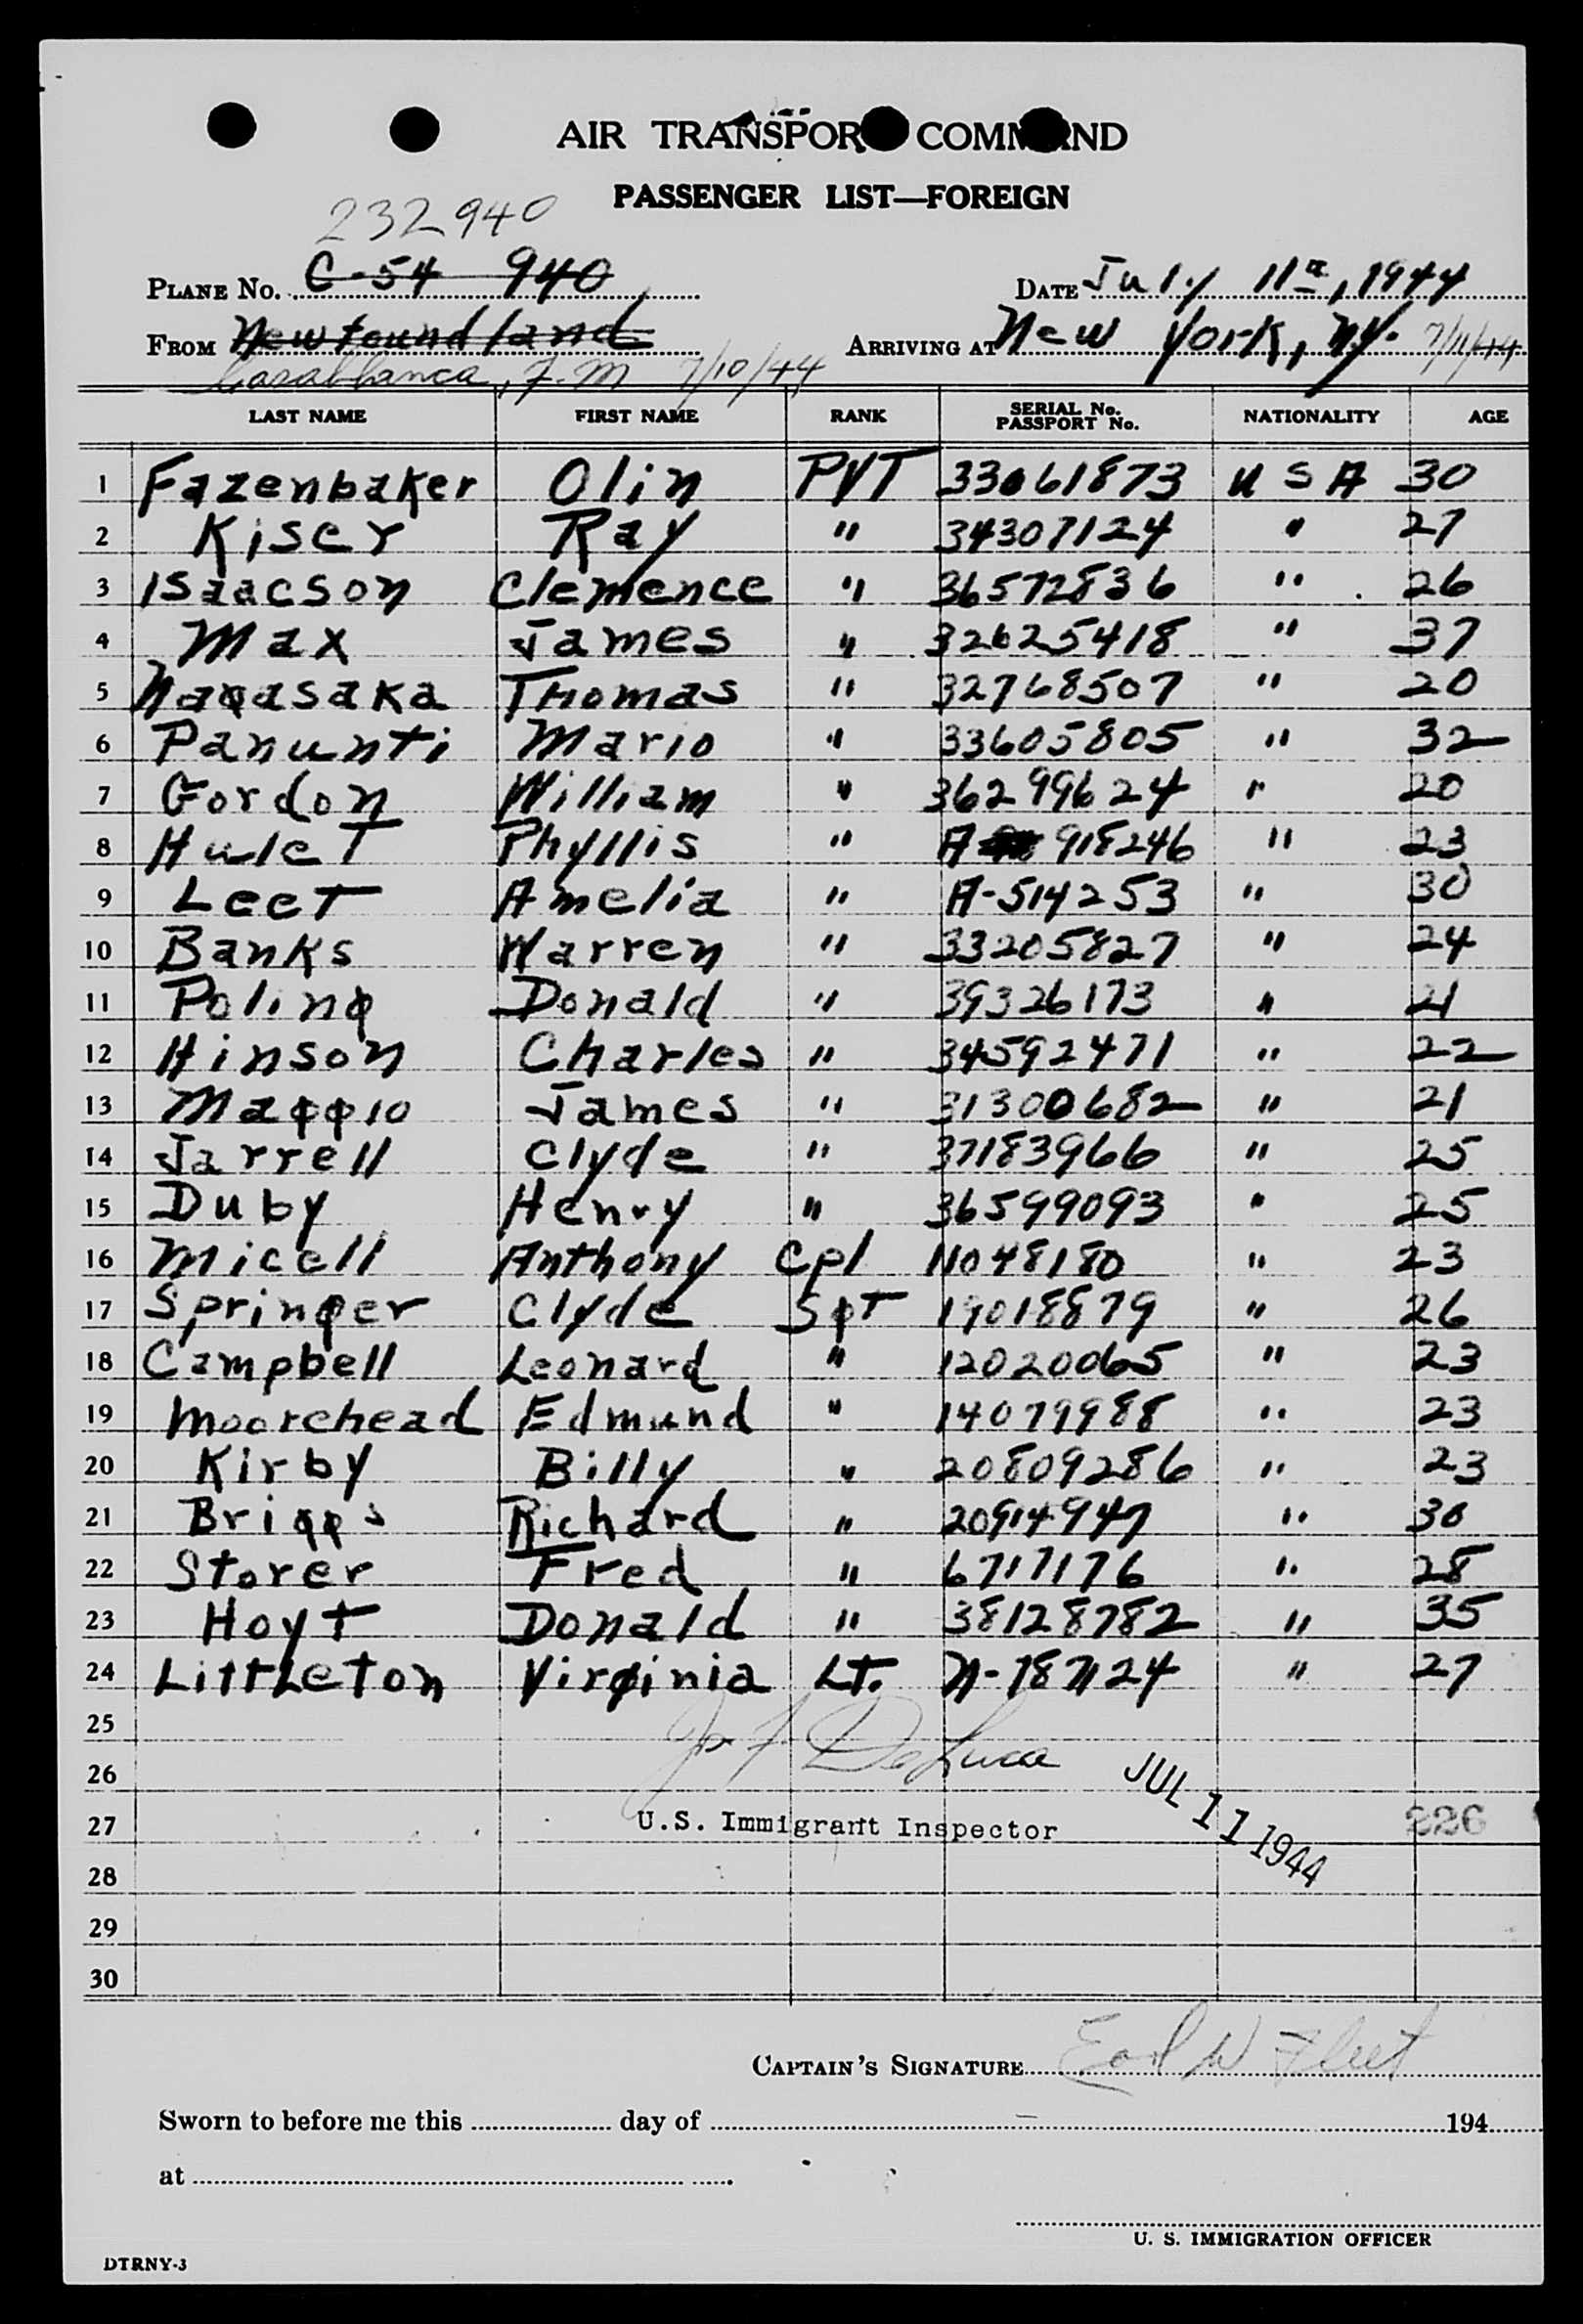 AIR TRANSPORT COMMAND
PASSENGER LIST—FOREIGN
232940
PLANE No. C-54 940
DATE July 11th, 1944
FROM Newfoundland
ARRIVING AT New York, N.Y. 7/11/44
Casablanca, F.M 7/10/44
LAST NAME FIRST NAME RANK SERIAL No. PASSPORT No. NATIONALITY AGE
1 Fazenbaker Olin PVT 33061873 USA 30
2 Kiser Ray " 34307124 " 27
3 Isaacson Clemence " 36572836 " 26
4 Max James " 32625418 " 37
5 Nagasaka Thomas " 32768507 " 20
6 Panunti Mario " 33605805 " 32
7 Gordon William " 36299624 " 20
8 Hulet Phyllis " A 918246 " 23
9 Leet Amelia " A-514253 " 30
10 Banks Warren " 33205827 " 24
11 Poling Donald " 39326173 " 21
12 Hinson Charles " 34592471 " 22
13 Maggio James " 31300682 " 21
14 Jarrell Clyde " 37183966 " 25
15 Duby Henry " 36599093 " 25
16 Micell Anthony Cpl 11048180 " 23
17 Springer Clyde Sgt 19018879 " 26
18 Campbell Leonard " 12020065 " 23
19 Moorehead Edmund " 14079988 " 23
20 Kirby Billy " 20809286 " 23
21 Briggs Richard " 20914947 " 30
22 Storer Fred " 6717176 " 28
23 Hoyt Donald " 38128782 " 35
24 Littleton Virginia Lt. N-787124 " 27
25
Jo. F. DeLuca
26
JUL 11 1944
27 U.S. Immigrant Inspector 226
28
29
30
CAPTAIN'S SIGNATURE Earl W Fleet
Sworn to before me this day of 194
at
U. S. IMMIGRATION OFFICER
DTRNY-3